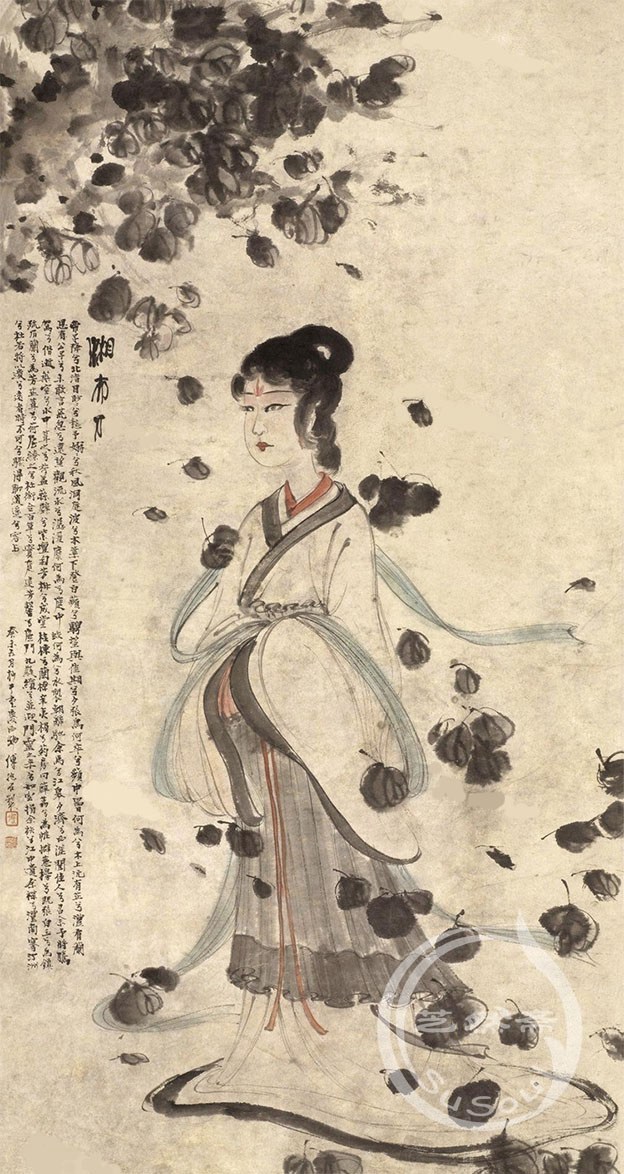 湘夫人
帝子降兮北渚目眇眇兮愁予嫋嫋兮秋風洞庭波兮木葉下登白薠兮騁望與佳期兮夕張鳥何萃兮蘋中罾何為兮木上沅有茝兮澧有蘭
思公子兮未敢言荒忽兮遠望觀流水兮潺湲麋何為兮庭中蛟何為兮水裔朝馳余馬兮江皋夕濟兮西澨聞佳人兮召余將騰
駕兮偕逝築室兮水中葺之兮荷蓋蓀壁兮紫壇播芳椒兮成堂桂棟兮蘭橑辛夷楣兮葯房罔薜荔兮為帷擗蕙櫋兮既張白玉兮為鎮
疏石蘭兮為芳芷葺兮荷屋繚之兮杜衡合百草兮實庭建芳馨兮廡門九嶷繽兮並迎靈之來兮如雲捐余袂兮江中遺余褋兮澧浦搴汀洲
兮杜若將以遺兮遠者時不可兮驟得聊逍遙兮容與
傅抱石
SuSou